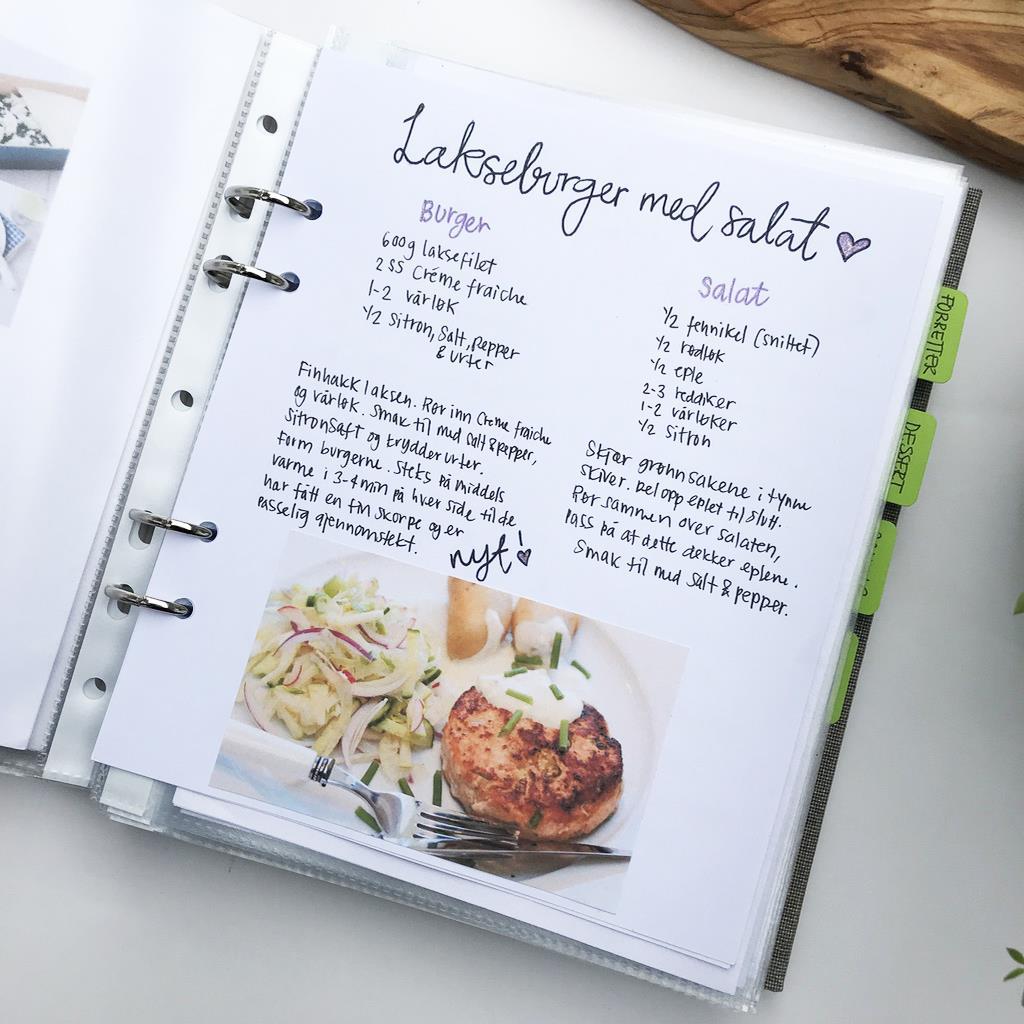 Lakseburger med salat
Burger
600g laksefilet
2 ss Créme fraiche
1-2 vårløk
1/2 Sitron, Salt, pepper
& urter
Finhakk laksen. Rør inn Creme fraiche
og vårløk. Smak til med salt & pepper,
sitronsaft og krydderurter.
Form burgerne. Steks på middels
varme i 3-4 min på hver side til de
har fått en fin skorpe og er
passelig gjennomstekt.
nyt!
Salat
1/2 fennikel (snittet)
1/2 rødløk
1/2 eple
2-3 reddiker
1-2 vårløker
1/2 sitron
Skjær grønnsakene i tynne
skiver. Del opp eplet til slutt.
Rør sammen over salaten,
pass på at dette dekker eplene.
Smak til med salt & pepper.
FORRETTER
DESSERT